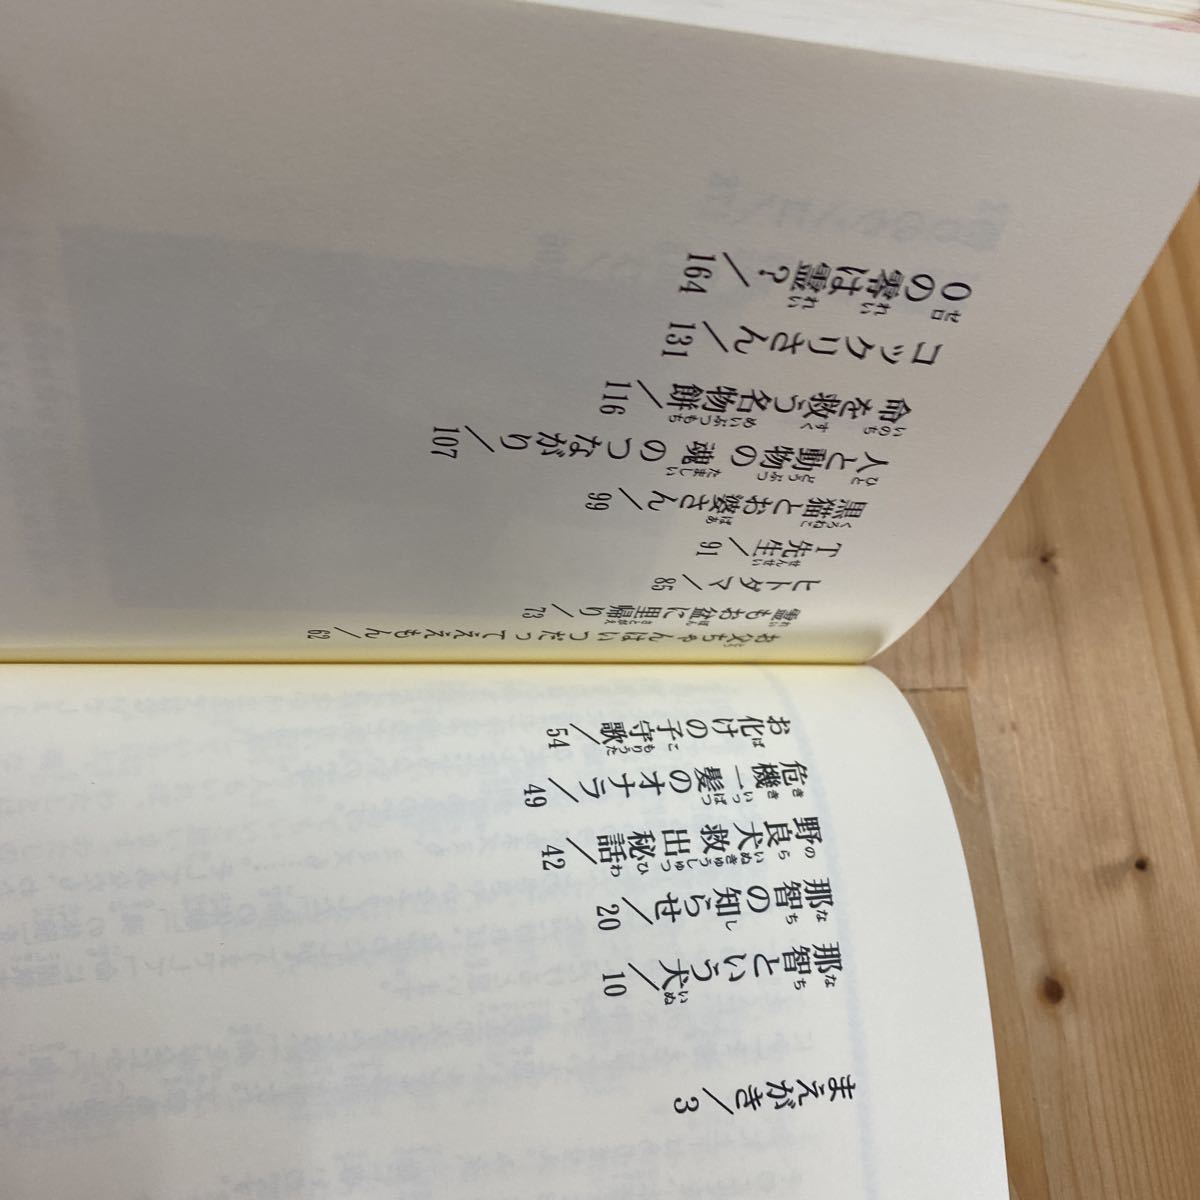 まえがき／3
那智という犬／10
那智の知らせ／20
野良犬救出秘話／42
危機一髪のオナラ／49
お化けの子守歌／54
お父ちゃんはいつだってええもん／62
霊もお盆に里帰り／73
ヒトダマ／85
T先生／91
黒猫とお婆さん／99
人と動物の魂のつながり／107
命を救う名物餅／116
コックリさん／131
0の零は霊？／164